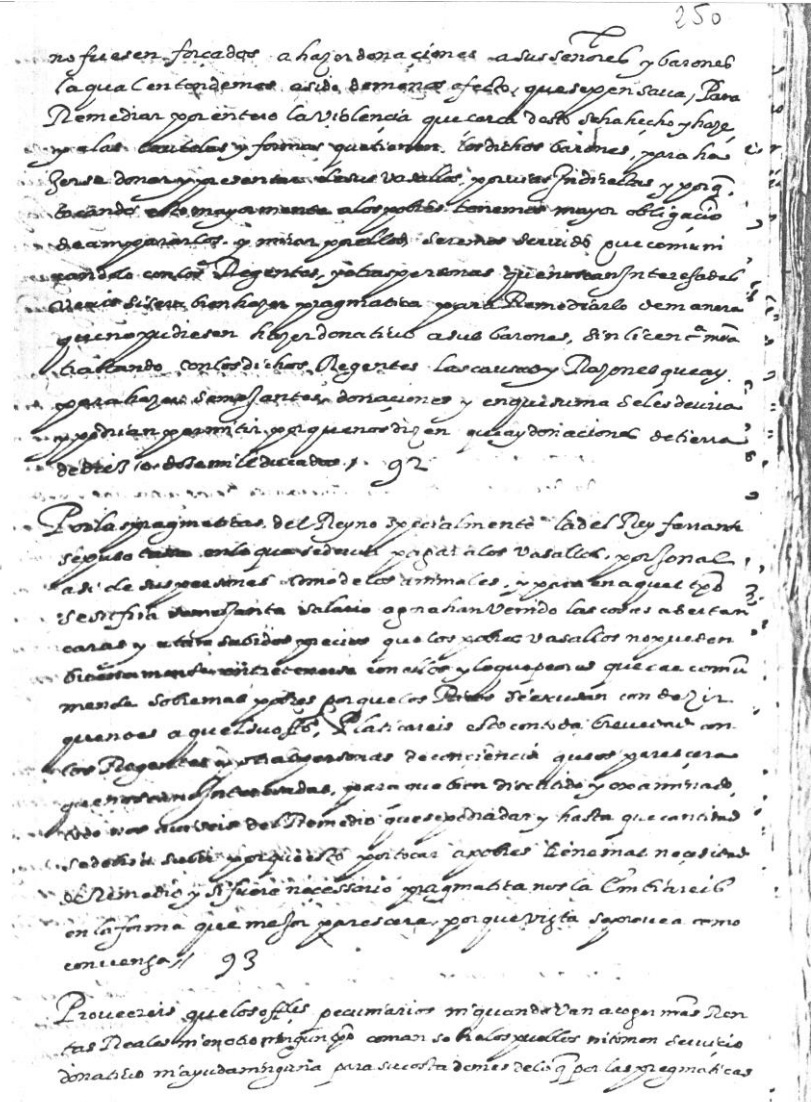 250
no fuesen forçados a hazer donaciones a sus señores y barones
la qual entendemos a sido de menos efeto, que se pensava, Para
Remediar por entero la violencia que cerca desto se ha hecho y haze
y a las cautelas y formas que tienen los dichos barones, para ha
zerse donar y presentar de sus vasallos, por vias Indirectas y porq.
tocando esto mayormente a los pobres tenemos mayor obligaçio
de ampararlos y mirar por ellos seremos servido que comuni
candolo con los Regentes, y otras personas que no sean Interesadas
veais si sera bien hazer pragmatica para Remediarlo de manera
que no pudiesen hazer donativo a sus barones, sin licençª nrã
tratando con los dichos Regentes las causas y Razones que ay
para hazer semejantes donaciones y en que suma se les devria
y podrian permitir porque nos dizen que ay donaciones de tierra
de diez o doze mil ducados / 92
Por las pragmaticas del Reyno specialmente la del Rey ferrante
se puso en lo que se devia pagar a los vasallos, por Jornal
asi de sus personas como de los animales, y para en aquel tpõ
se sufria semejante salario agora han venido las cosas a ser tan
caras y a tan subidos precios que los pobres vasallos no pueden
entretenerse con ellos y lo que peor es que cae comũ
mente sobre mas pobres porque los se excusan con dezir
que no es a quel su offõ, Platicareis esto con toda brevedad con
los Regentes y otras personas de conciencia que os parescera
que no sean Interesadas, para que bien discutido y examinado
todo nos aviseis del Remedio que se podria dar y hasta que cantidad
se devria subir porque esto por tocar a pobres tiene mas necesidad
de Remedio y si fuere necessario pragmatica nos la Embiareis
en la forma que mejor parescera, porque vista se provea como
convenga // 93
Proveereis que los offles pecuniarios ni quando van a coger nrãs Ren
tas Reales ni en otro ningun tpõ coman sobre los pueblos ni tomen servicio
donativo ni ayuda ninguna para su costa demas de lo q̃ por las pregmaticas